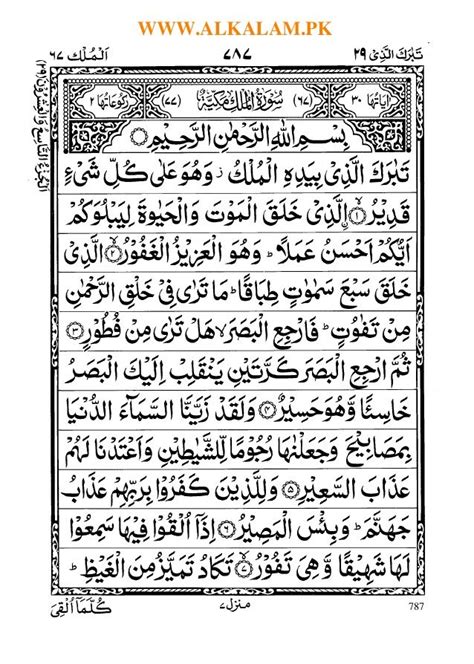 WWW.ALKALAM.PK
تَبٰرَكَ الَّذِیْ ٢٩
٧٨٧
اَلْمُلْك ٦٧
اٰیَاتُهَا ٣٠
(٦٧) سُوْرَةُ الْمُلْكِ مَكِّیَّةٌ (٧٧)
رُكُوْعَاتُهَا ٢
بِسْمِ اللّٰهِ الرَّحْمٰنِ الرَّحِیْمِ
تَبٰرَكَ الَّذِیْ بِیَدِهِ الْمُلْكُ ز وَهُوَ عَلٰی كُلِّ شَیْءٍ
قَدِیْرُ ۙ﴿١﴾ الَّذِیْ خَلَقَ الْمَوْتَ وَالْحَیٰوةَ لِیَبْلُوَكُمْ
اَیُّكُمْ اَحْسَنُ عَمَلًا ؕ وَهُوَ الْعَزِیْزُ الْغَفُوْرُ ۙ﴿٢﴾ الَّذِیْ
خَلَقَ سَبْعَ سَمٰوٰتٍ طِبَاقًا ؕ مَا تَرٰی فِیْ خَلْقِ الرَّحْمٰنِ
مِنْ تَفٰوُتٍ ؕ فَارْجِعِ الْبَصَرَ ۙ هَلْ تَرٰی مِنْ فُطُوْرٍ ﴿٣﴾
ثُمَّ ارْجِعِ الْبَصَرَ كَرَّتَیْنِ یَنْقَلِبْ اِلَیْكَ الْبَصَرُ
خَاسِئًا وَّهُوَ حَسِیْرٌ ﴿٤﴾ وَلَقَدْ زَیَّنَّا السَّمَآءَ الدُّنْیَا
بِمَصَابِیْحَ وَجَعَلْنٰهَا رُجُوْمًا لِّلشَّیٰطِیْنِ وَاَعْتَدْنَا لَهُمْ
عَذَابَ السَّعِیْرِ ﴿٥﴾ وَلِلَّذِیْنَ كَفَرُوْا بِرَبِّهِمْ عَذَابُ
جَهَنَّمَ ؕ وَبِئْسَ الْمَصِیْرُ ﴿٦﴾ اِذَاۤ اُلْقُوْا فِیْهَا سَمِعُوْا
لَهَا شَهِیْقًا وَّهِیَ تَفُوْرُ ۙ﴿٧﴾ تَكَادُ تَمَیَّزُ مِنَ الْغَیْظِ ؕ
كُلَّمَاۤ اُلْقِیَ
منزل ٧
787